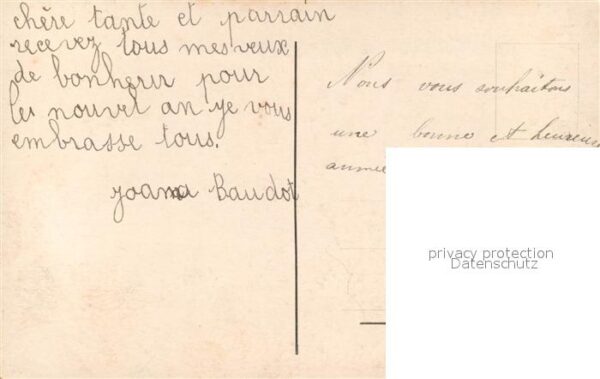 chère tante et parrain
recevez tous mes veux
de bonheur pour
le nouvel an je vous
embrasse tous.
Baudot
Nous vous souhaitons
une bonne et heureuse
année
privacy protection
Datenschutz